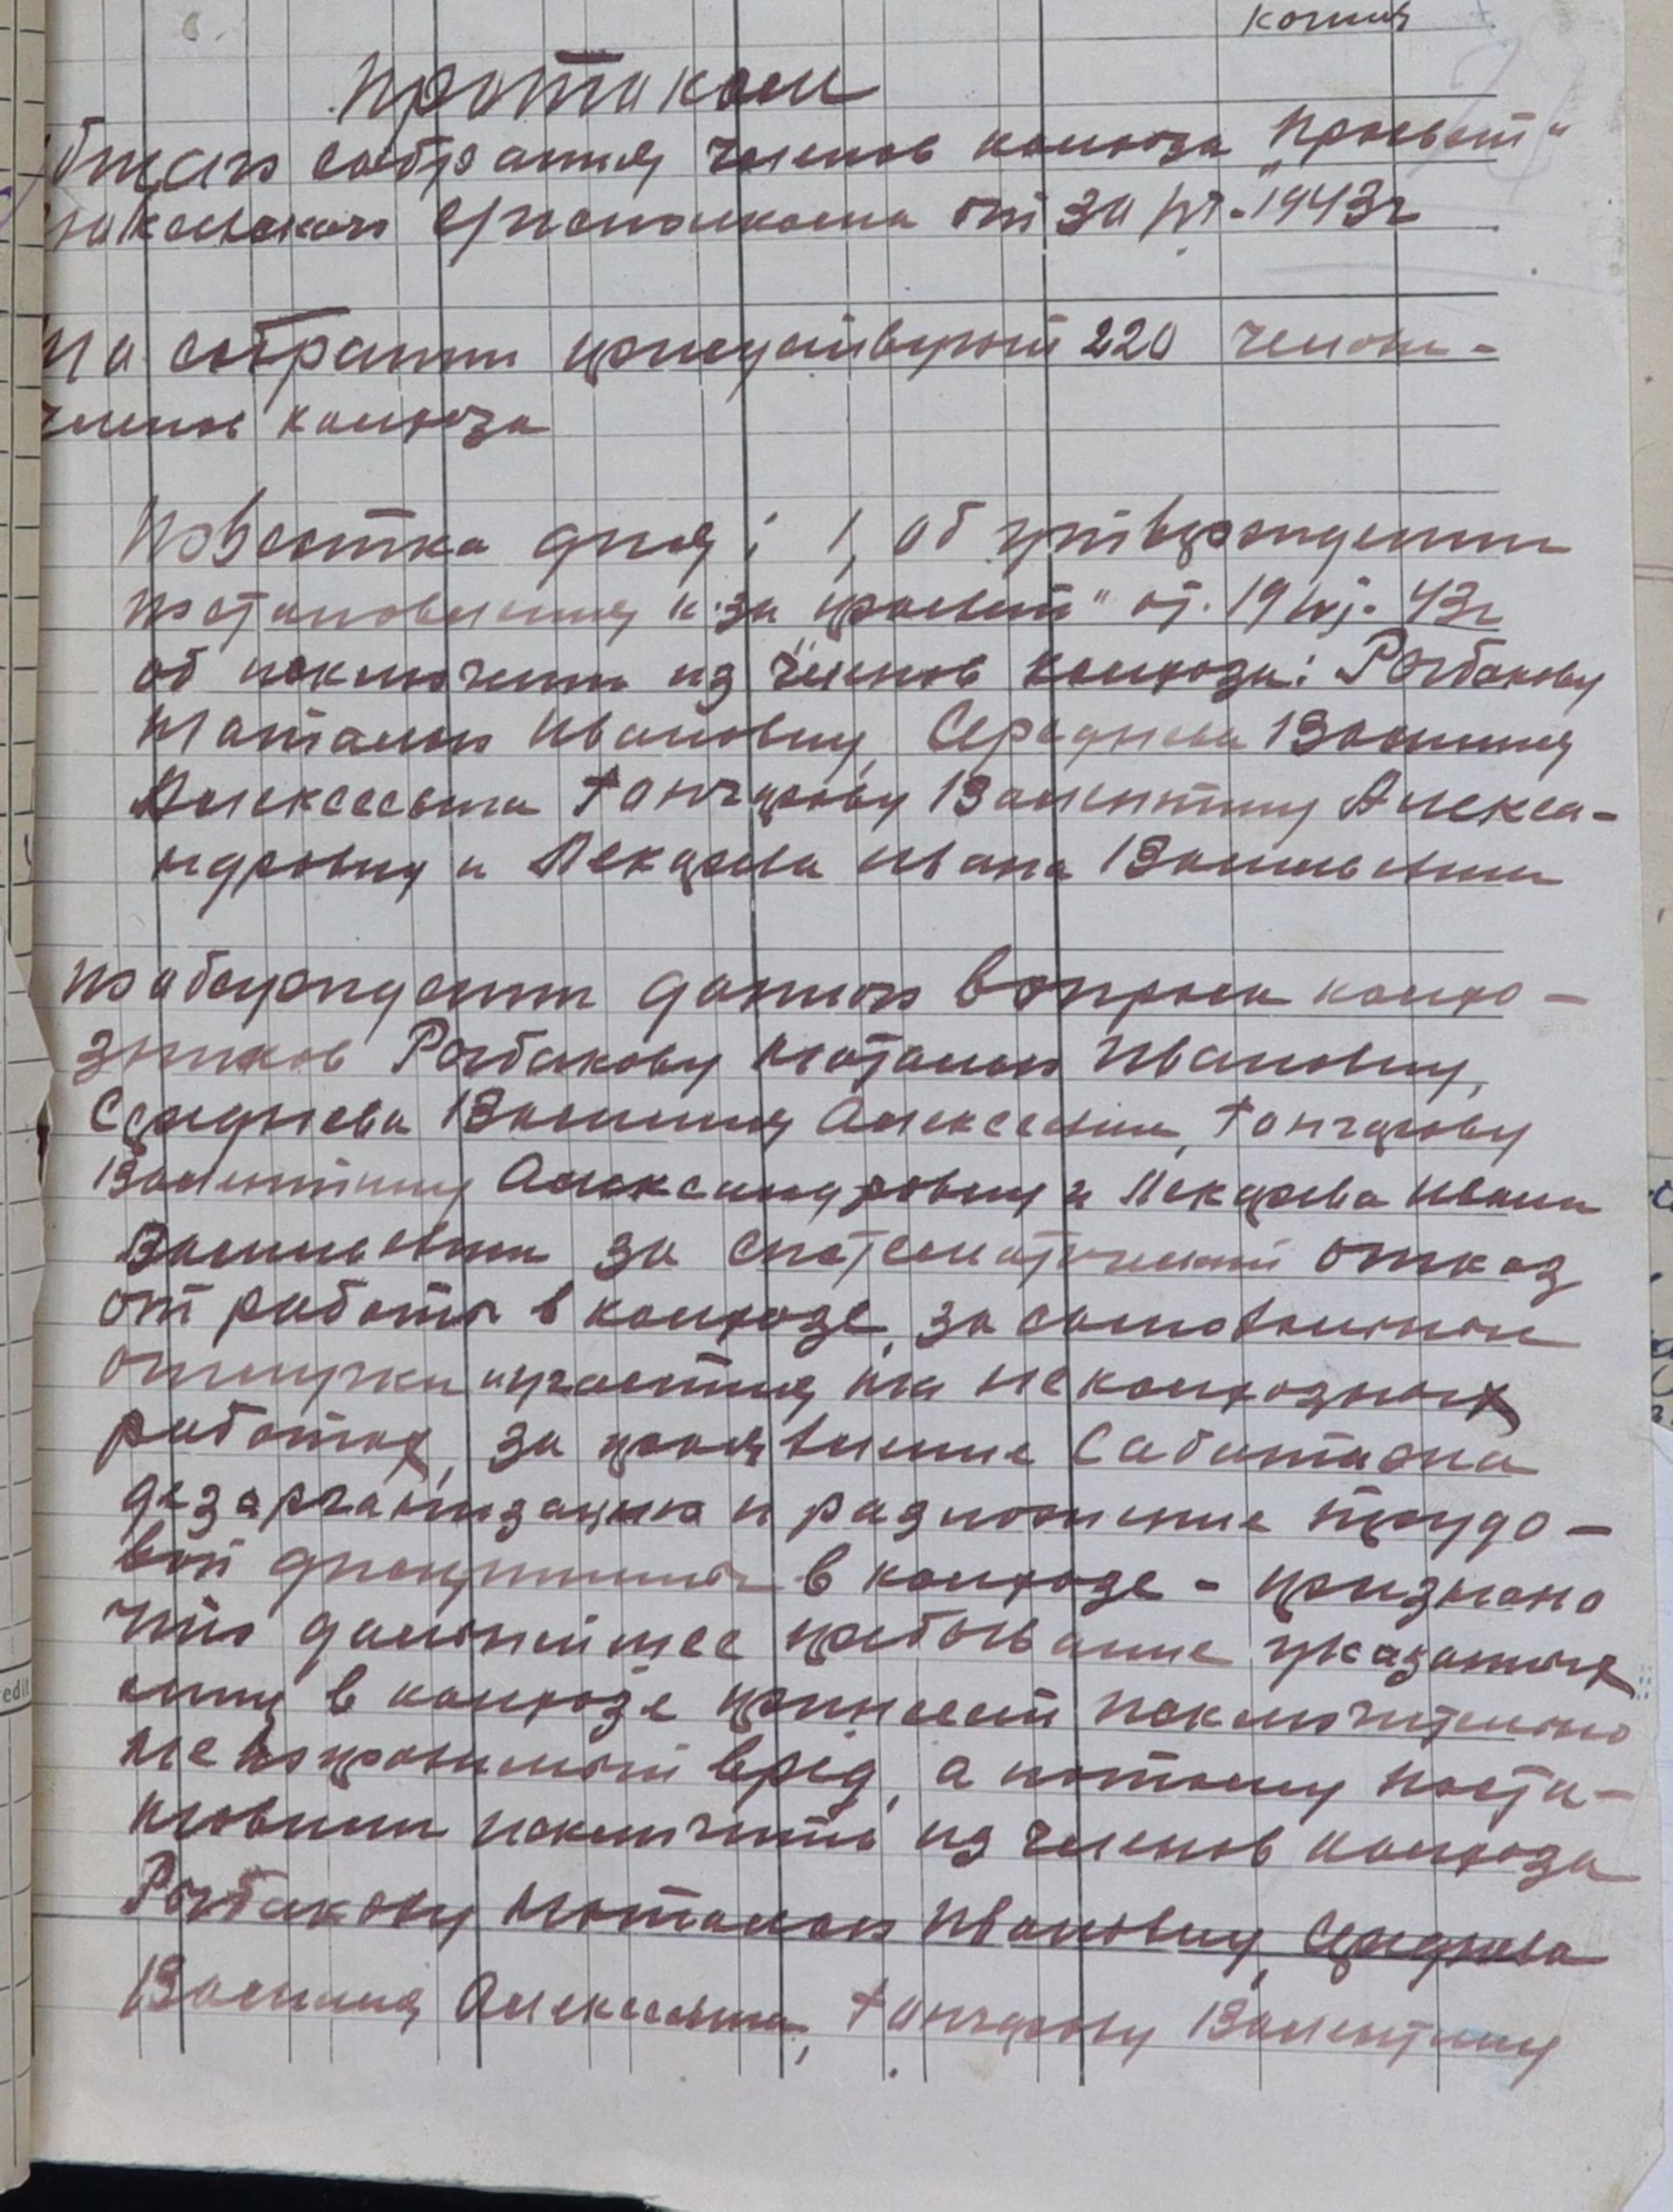 копия
Протокол
общего собрания членов колхоза "Просвет"
исполкома от 30/VI-1943г
На собрании присутствуют 220 человек
членов колхоза
Повестка дня: 1, об утверждении
постановления к-за "Просвет" от. 19/VI- 43г
об исключении из членов колхоза: Рыбакову
Наталью Ивановну, Середнева Василия
Алексеевича Гончарову Валентину Алекса-
ндровну и Лекарева Ивана Васильевич
По обсуждении данного вопроса колхо-
зников Рыбакову Наталью Ивановну,
Середнева Василия Алексеевич, Гончарову
Валентину Александровну и Лекарева Ивана
Васильевич за систематический отказ
от работы в колхозе, за самовольные
отлучки и участия на не колхозных
работах, за проявление саботажа
дезарганизацию и разложение трудо-
вой дисциплины в колхозе - признано
что дальнейшее пребывание указанных
лиц в колхозе принесет исключительно
не поправимый вред, а потому поста-
новили исключить из членов колхоза
Рыбакову Наталью Ивановну, Середнева
Василия Алексеевича, Гончарову Валентину